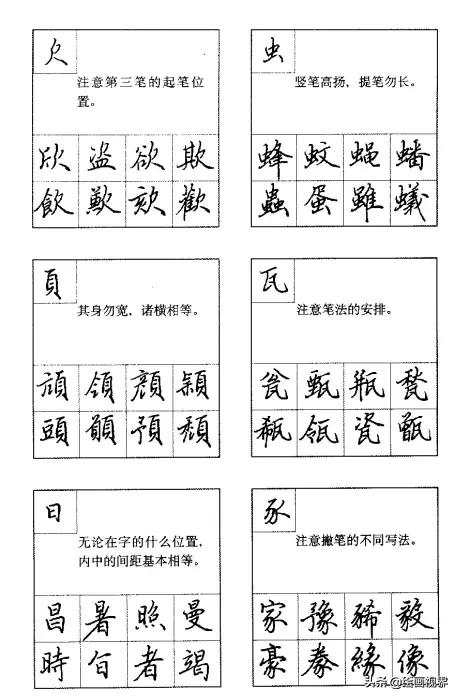 欠
注意第三笔的起笔位
置。
欣 盗 欲 欺
飲 歉 欬 歡
虫
竖笔高扬，提笔勿长。
蜂 蚊 蝇 蟠
蟲 蛋 雖 蟻
頁
其身勿宽，诸横相等。
頑 領 顔 穎
頭 顧 預 頹
瓦
注意笔法的安排。
瓮 甄 瓶 甃
瓻 瓴 瓷 甑
日
无论在字的什么位置，
内中的间距基本相等。
昌 暑 照 曼
時 旨 者 竭
豕
注意撇笔的不同写法。
家 豫 豨 毅
豪 豢 緣 像
头条@绘画视界